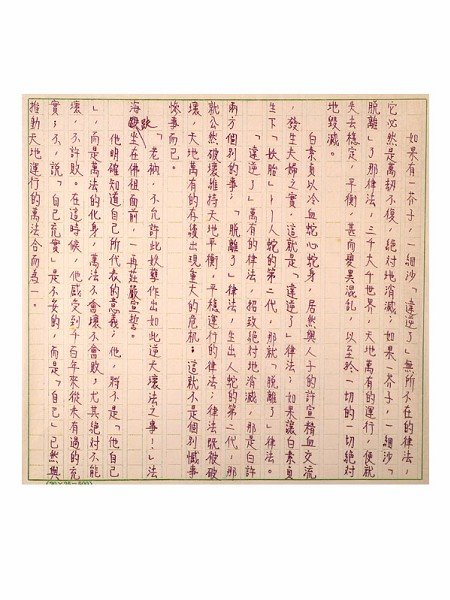 如果有一芥子,一細沙「違逆了」無所不在的律法,
它必然是萬劫不復,絕對地消滅;如果一芥子,一細沙「
脫離」了那律法,三千大千世界,天地萬有的運行,便就
失去穩定、平衡,甚而變異混亂,以至於一切的一切絕對
地毀滅。
白素貞以冷血蛇心蛇身,居然與人子的許宣精血交流
,發生夫婦之實,這就是「違逆了」律法;如果讓白素貞
生下「妖胎」——人蛇的第二代,那就「脫離了」律法。
「違逆了」萬有的律法,招致絕對地消滅,那是白許
兩方個別的事;「脫離了」律法,生出人蛇的第二代,那
就公然破壞維持天地平衡,平穩運行的律法;律法既被破
壞,天地萬有的存續出現重大的危機;這就不是個別憾事
慘事而已。
「老衲,不允許此妖孽作出如此逆天壞法之事!」法
海趺坐在佛祖面前,一再莊嚴宣誓。
他明確知道自己所代表的意義;他,將不是「他自己
」,而是萬法的化身,萬法不會壞不會敗;尤其絕對不能
壞,不許敗。在這時候,他感受到千百年來從未有過的充
實;不,說「自己充實」是不妥的,而是「自己」已然與
推動天地運行的萬法合而為一。